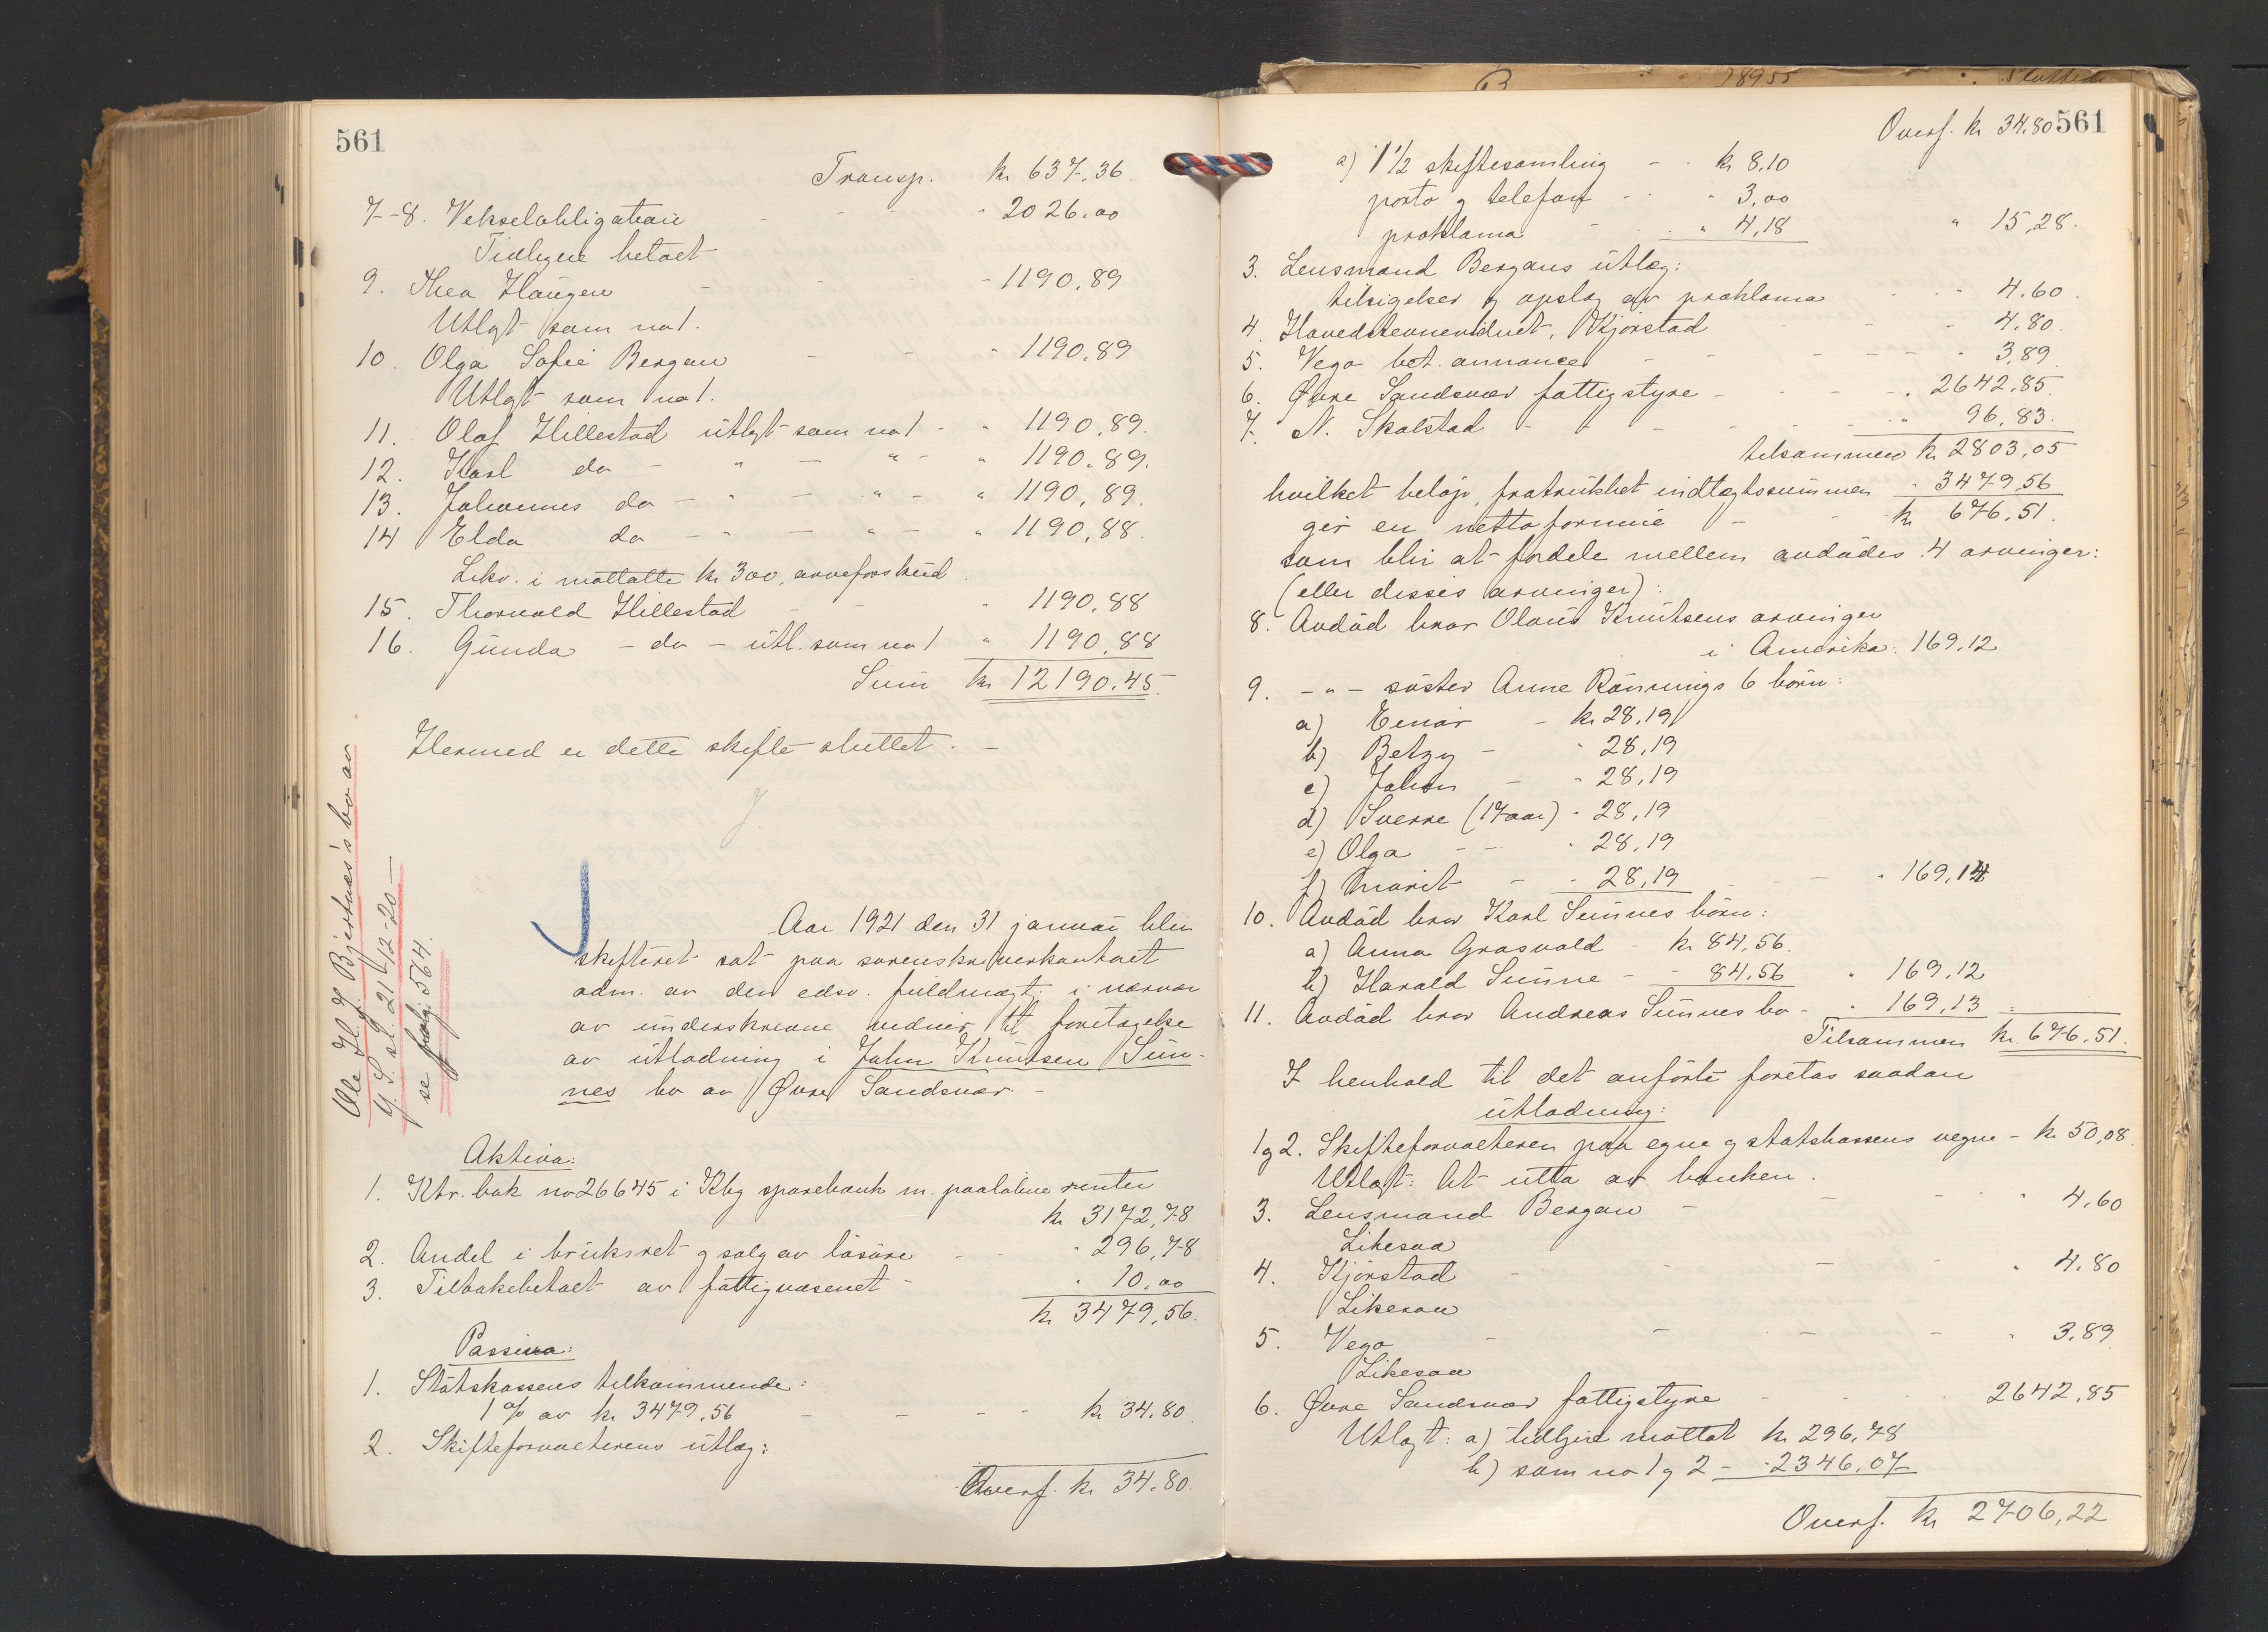 561
Transp. kr 637,36.
7-8. Vekselobligation - - - " 2026.00
Tidligere betalt
9. Thea Haugen - - - 1190,89
Utlagt som no 1.
10. Olga Sofie Bergan - - " 1190,89
Utlagt som no 1.
11. Olaf Hillestad utlagt som no 1 - " 1190,89.
12. Karl do - " - " - " 1190,89.
13. Johannes do - " - " - " 1190,89.
14 Elda do - " - " - " 1190,88.
Likv. i mottatte kr 300, arveforskud.
15. Thorvald Hillestad - - " 1190,88
16. Gunda - do - utl. som no 1 " 1190,88
Sum kr 12190.45.
Hermed er dette skifte sluttet. -
Ole H. J. Bjertnæs's bo av
Y. S. sl. 21/12-20 -
se folg: 564.
Aar 1921 den 31 januar blev
skifteret sat paa sorenskriverkontoret
adm. av den edsv. fuldmægt. i nærvær
av underskrevne vidner til foretagelse
av utlodning i John Knutsen Sun-
nes bo av Øvre Sandsvær -
Aktiva:
1. Ktr. bok no 26645 i Kbg sparebank m. paaløbne renter
kr 3172,78
2. Andel i bruksret g salg av løsøre - " 296,78
3. Tilbakebetalt av fattigvæsenet - " 10,00
kr 3479,56.
Passiva:
1. Statskassens tilkommende:
1 % av kr 3479.56 - - - - kr 34.80.
2. Skifteforvalterens utlæg:
Overf. kr 34.80.
Overf. kr 34.80 561
a) 1 1/2 skiftesamling - - kr 8,10
porto g telefon - - " 3,00
proklama - . " 4,18 " 15,28.
3. Lensmand Bergans utlæg:
tilsigelser g opslag av proklama - - 4.60.
4. Hovedstevnevidnet, Kjørstad - - 4,80.
5. Vego bet. annonce - - - - - " 3,89
6. Øvre Sandsvær fattigstyre - - - . 2642,85.
7. N. Skalstad - - - - - " 96,83.
tilsammen kr 2803,05
hvilket beløp, fratrukket indtægtssummen " 3479,56
gir en nettoformue - - kr 676,51.
som blir at fordele mellem avdødes 4 arvinger:
(eller disses arvinger):
8. Avdød bror Olaus Knutsens arvinger
i Amerika: 169,12
9. - " - søster Anne Rønnings 6 børn:
a) Einar - kr 28,19
b) Betzy - " 28,19
c) Johan - " 28,19
d) Sverre (17 aar) " 28,19
e) Olga - - " 28,19
f) Marit - - 28,19 - - - " 169,14
10. Avdød bror Karl Sunnes børn:
a) Anna Grosvold - kr 84,56.
b) Harald Sunne - - 84,56 " 169,12
11. Avdød bror Andreas Sunnes bo - " 169,13
Tilsammen kr. 676,51.
I henhold til det anførte foretas saadan
utlodning:
1 g 2. Skifteforvalteren paa egne g statskassens vegne - kr 50,08.
Utlagt: At utta av banken.
3. Lensmand Bergan - - - " 4,60
Likesaa
4. Kjørstad - - - - " 4.80
Likesaa
5. Vego - - - - " 3.89
Likesaa
6. Øvre Sandsvær fattigstyre - - . 2642,85
Utlagt: a) tidligere mottat kr 296,78
b) som no 1 g 2 - " 2346,07
Overf. kr 2706,22